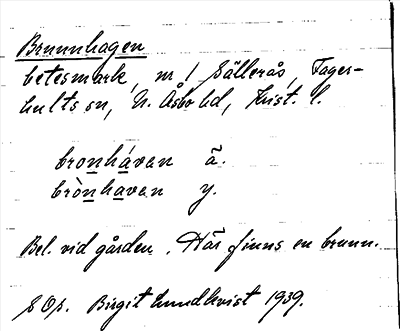 Brunnhagen
betesmark, nr 1 Sällerås, Fager-
hults sn, N. Åsbo hd, Krist. l.
bronhávan ä.
brònhavan y.
Bel. vid gården. Här finns en brunn.
S Op. Birgit Lundkvist 1939.